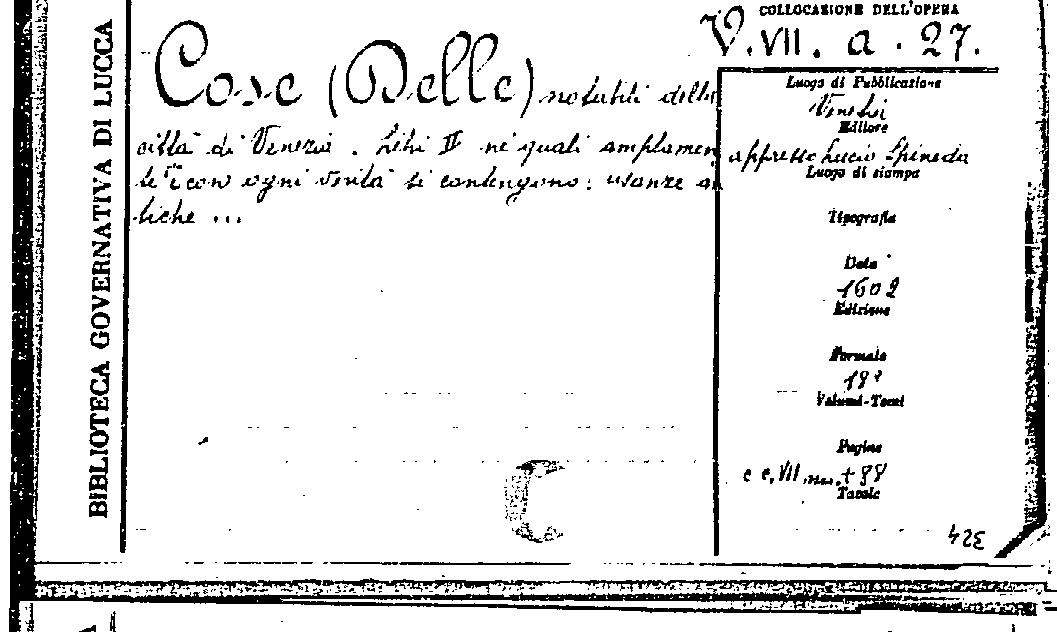 BIBLIOTECA GOVERNATIVA DI LUCCA
COLLOCAZIONE DELL'OPERA
V.VII. a. 27.
Cose (Delle) notabili della
città di Venezia. Libri II ne' quali amplamen
te e con ogni verità si contengono: usanze an
tiche ...
Luogo di Pubblicazione
Venezia
Editore
appresso Lucio Spineda
Luogo di stampa
Tipografia
Data
1602
Edizione
Formato
18°
Volumi-Tomi
Pagine
c c. VII + 88
Tavole
C